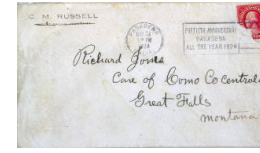 C. M. RUSSELL
PASADENA
1924
FIFTIETH ANNIVERSARY
PASADENA
ALL THE YEAR 1924
Richard Jones
Care of Como Co central
Great Falls
Montana